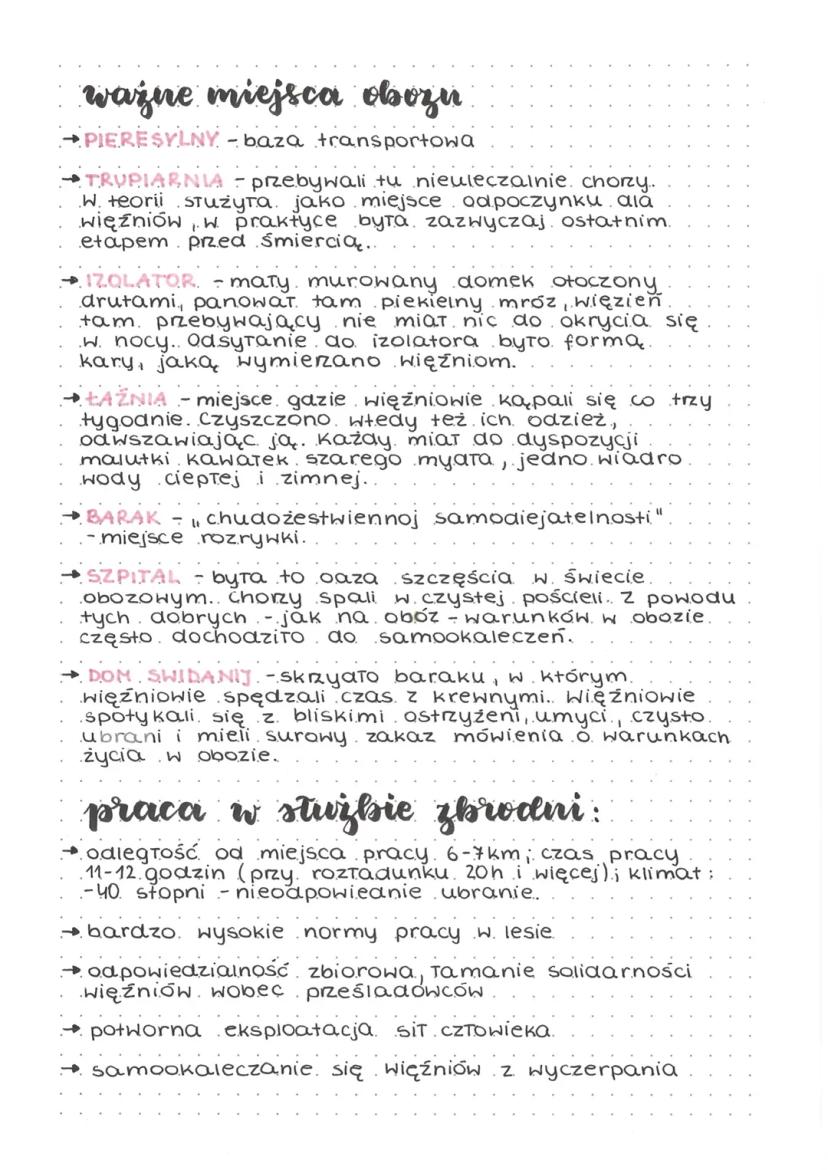 ważne miejsca obozu
→ PIERESYLNY - baza transportowa
→ TRUPIARNIA - przebywali tu nieuleczalnie chorzy.
W teorii służyła jako miejsce odpoczynku dla
więźniów, w praktyce była zazwyczaj ostatnim
etapem przed śmiercią.
→ IZOLATOR - mały murowany domek otoczony
drutami, panował tam piekielny mróz, więzień
tam przebywający nie miał nic do okrycia się
w nocy. Odsyłanie do izolatora było formą
kary, jaką wymierzano więźniom.
→ ŁAŹNIA - miejsce gdzie więźniowie kąpali się co trzy
tygodnie. Czyszczono wtedy też ich odzież,
odwszawiając ją. Każdy miał do dyspozycji
malutki kawałek szarego mydła, jedno wiadro
wody ciepłej i zimnej.
→ BARAK - „chudożestwiennoj samodiejatelnosti"
- miejsce rozrywki.
→ SZPITAL - była to oaza szczęścia w świecie
obozowym. Chorzy spali w czystej pościeli. Z powodu
tych dobrych - jak na obóz - warunków w obozie
często dochodziło do samookaleczeń.
→ DOM SWIDANIJ - skrzydło baraku, w którym
więźniowie spędzali czas z krewnymi. Więźniowie
spotykali się z bliskimi ostrzyżeni, umyci, czysto
ubrani i mieli surowy zakaz mówienia o warunkach
życia w obozie.
praca w służbie zbrodni:
→ odległość od miejsca pracy 6-7km; czas pracy
11-12 godzin (przy rozładunku 20h i więcej); klimat:
-40 stopni - nieodpowiednie ubranie.
→ bardzo wysokie normy pracy w lesie
→ odpowiedzialność zbiorowa, łamanie solidarności
więźniów wobec prześladowców
→ potworna eksploatacja sił człowieka
→ samookaleczanie się więźniów z wyczerpania